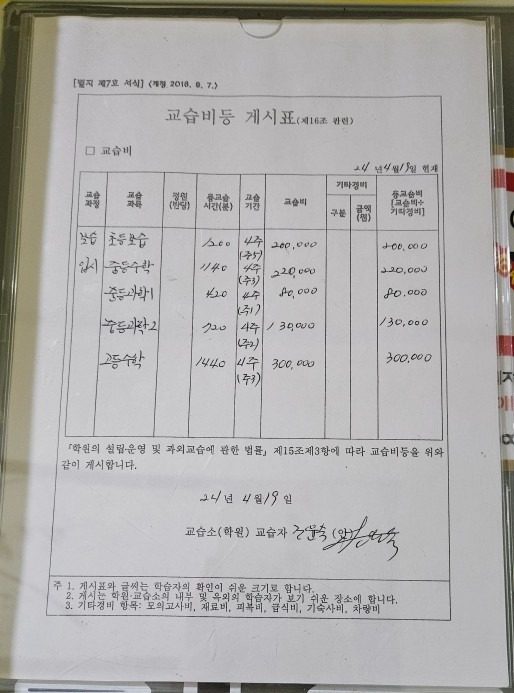 [별지 제7호 서식] (개정 2016. 9. 7.)
교습비등 게시표(제16조 관련)
□ 교습비
24 년 4월 19일 현재
교습과정 교습과목 정원(반당) 총교습시간(분) 교습기간 교습비 기타경비 총교습비[교습비+기타경비]
구분 금액(원)
보습 초등보습 1200 4주(주5) 200,000 200,000
입시 중등수학 1140 4주(주3) 220,000 220,000
중등과학1 420 4주(주1) 80,000 80,000
중등과학2 720 4주(주2) 130,000 130,000
고등수학 1440 4주(주3) 300,000 300,000
「학원의 설립·운영 및 과외교습에 관한 법률」 제15조제3항에 따라 교습비등을 위와
같이 게시합니다.
24 년 4 월 19 일
교습소(학원) 교습자
주 1. 게시표와 글씨는 학습자의 확인이 쉬운 크기로 합니다.
2. 게시는 학원·교습소의 내부 및 옥외의 학습자가 보기 쉬운 장소에 합니다.
3. 기타경비 항목: 모의고사비, 재료비, 피복비, 급식비, 기숙사비, 차량비